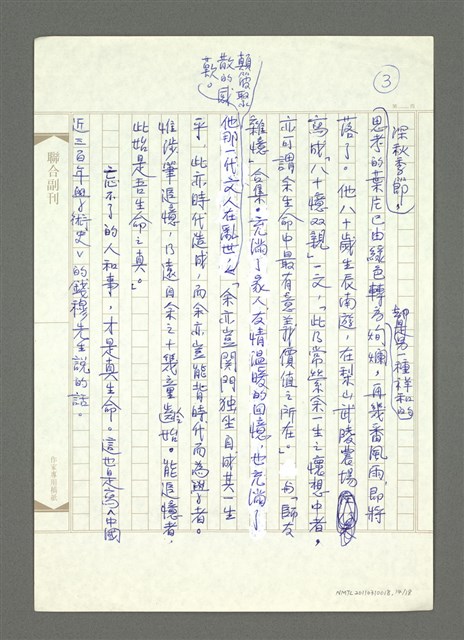 ③
深秋季節，
卻是另一種祥和的
思考的葉片已由綠色轉為絢爛，再幾番風雨，即將
落了。他八十歲生辰南遊，在梨山武陵農場
寫成「八十憶双親」一文，「此乃常縈余一生之懷想中者，
亦可謂余生命中最有意義價值之所在。」与「師友
雜憶」合集。充滿了家人友情溫暖的回憶，也充滿了
他那一代文人在亂世，
顛簸聚
散的感
歎。
「余亦豈関門独坐自成其一生
乎，此亦時代造成，而余亦豈能背時代而為學者。
惟涉筆追憶，乃遠自余之十幾童齡始。能追憶者，
此始是吾生命之真。」
忘不了的人和事，才是真生命。這也是寫《中國
近三百年學術史》的錢穆先生說的話。
聯合副刊
作家專用稿紙
NMTL20110310018, 14/18